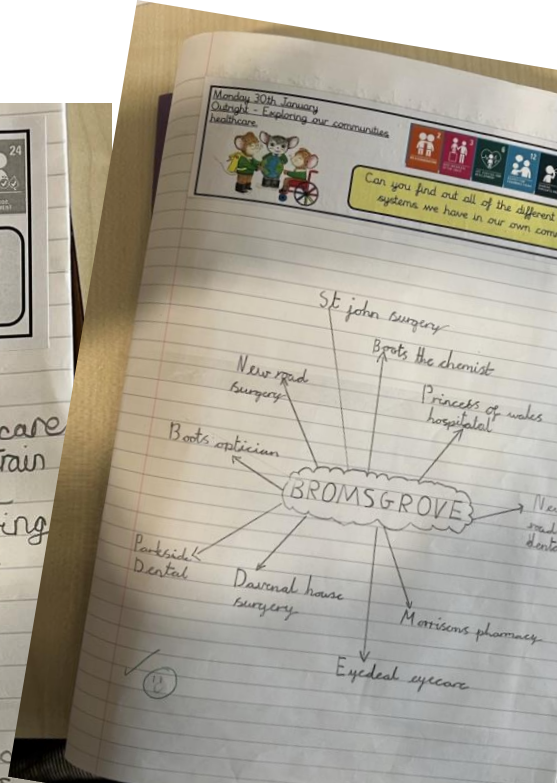 24
care
rain
ing
Monday 30th January
Outright - Exploring our communities
healthcare
2
3
6
12
Can you find out all of the different
systems we have in our own com
St john surgery
Boots the chemist
New road
surgery
Princess of wales
hospitalal
Boots optician
BROMSGROVE
Ne
road
denta
Parkside
Dental
Davenal house
surgery
Morrisons pharmacy
Eyedeal eyecare